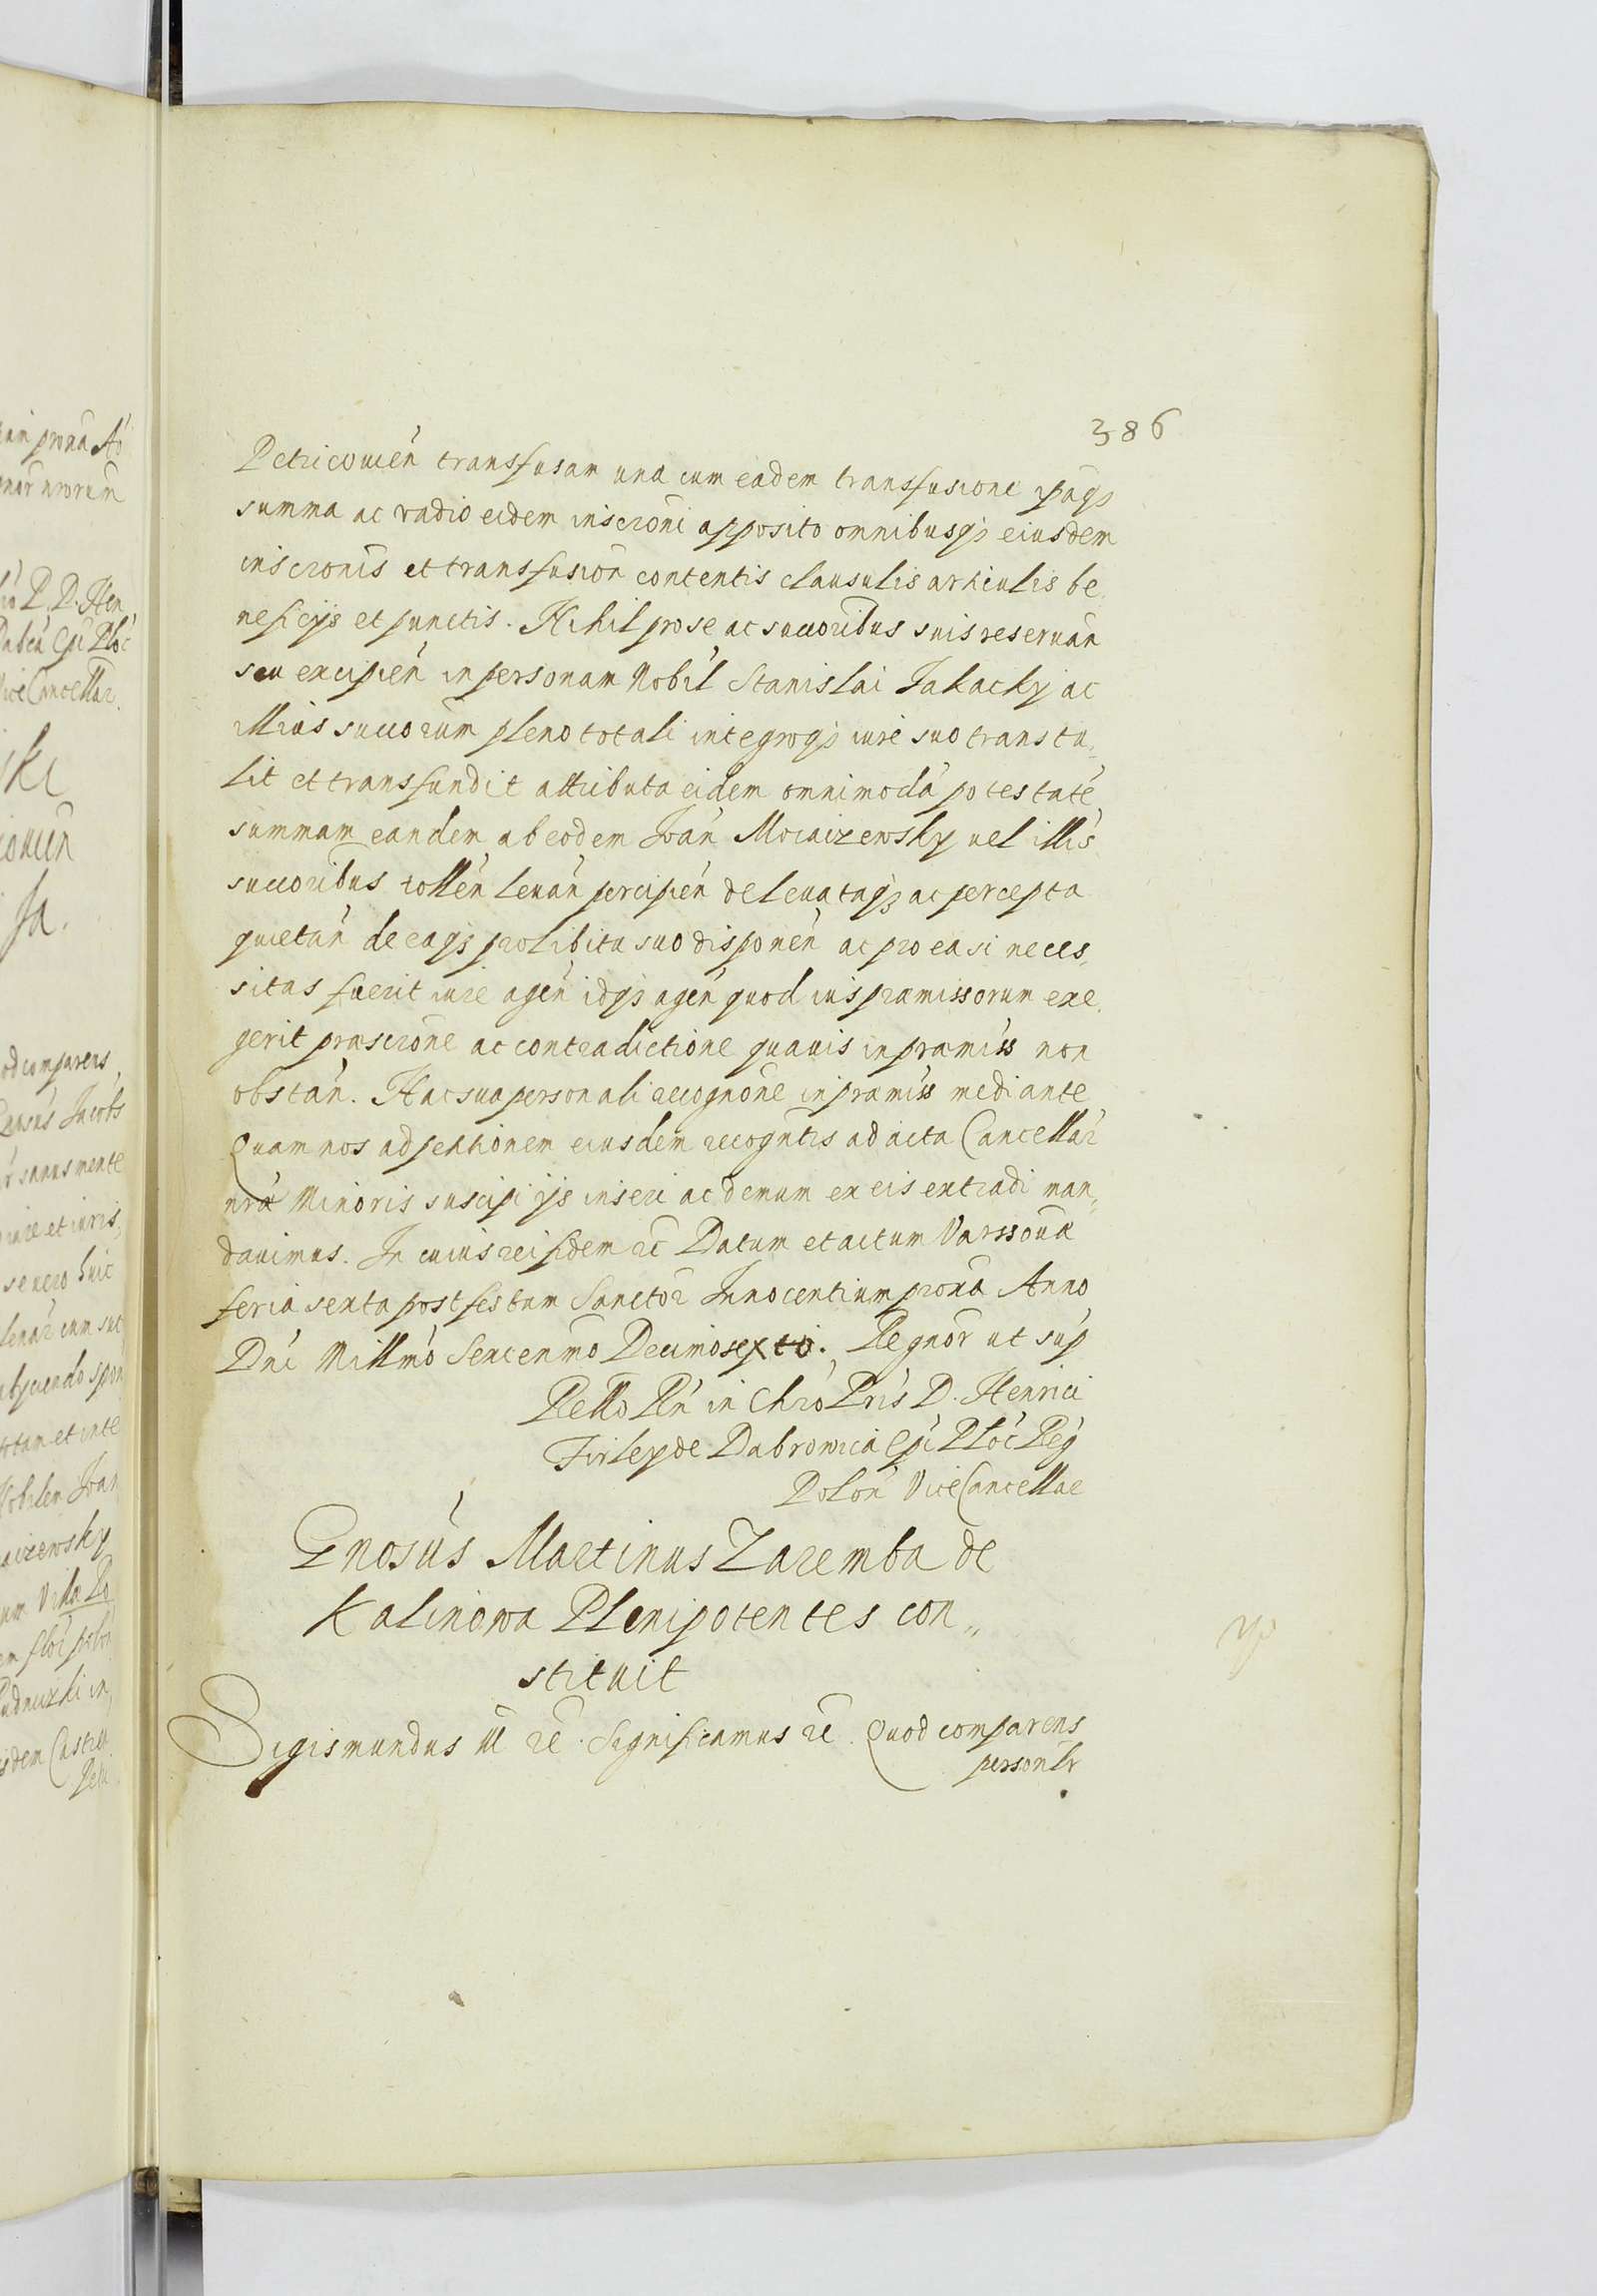 386
Petricouień transfusam una cum eadem transfusione ipāqȝ
summa ac vadio eidem inscrōni apposito omnibusqȝ eiusdem
inscrōnis et transfusion̄ contentis clausulis articulis be
neficijs et punctis. Nihil pro se ac succoribus suis reseruan̄
seu excipień in personam Nobil Stanislai Jakacky ac
illius succorum pleno totali integroqȝ iure suo transtu„
lit et transfundit attributa eidem omnimodá potestaté
summam eandem ab eodem Joań Mocaizewsky uel illis
succoribus tolleń leuań percipień deleuataqȝ ac percepta
quietań de eaqȝ pro libitu suo disponeń ac pro ea si neces„
sitas fuerit iure ageń idqȝ ageń quod ius praemissorum exe
gerit præscrōne ac contradictione quauis in praemiss non
obstań. Hac sua personali recognōne in praemiss mediante
Quam nos ad petitionem eiusdem recogntis ad acta Cancellar̄
nrá Minoris suscipi ijs inseri ac demum ex eis extradi man„
dauimus. In cuius rei fidem rc̄ Datum et actum Varssouā
feria sexta post festum Sanctor Innocentium proxā Anno
Dni Millmo Sexcenmo Decimosexto. Regnor̄ ut sup
Rello Rń in Chró Pris D. Henrici
Firley de Dabrowica Epi Plóc Rég
Polon̄ ViceCancellae
Gnosús Martinus Zaremba de
Kalinowa Plenipotentes con„
stituit
Sigismundus III rc̄. Significamus rc̄. Quod comparens
personlr